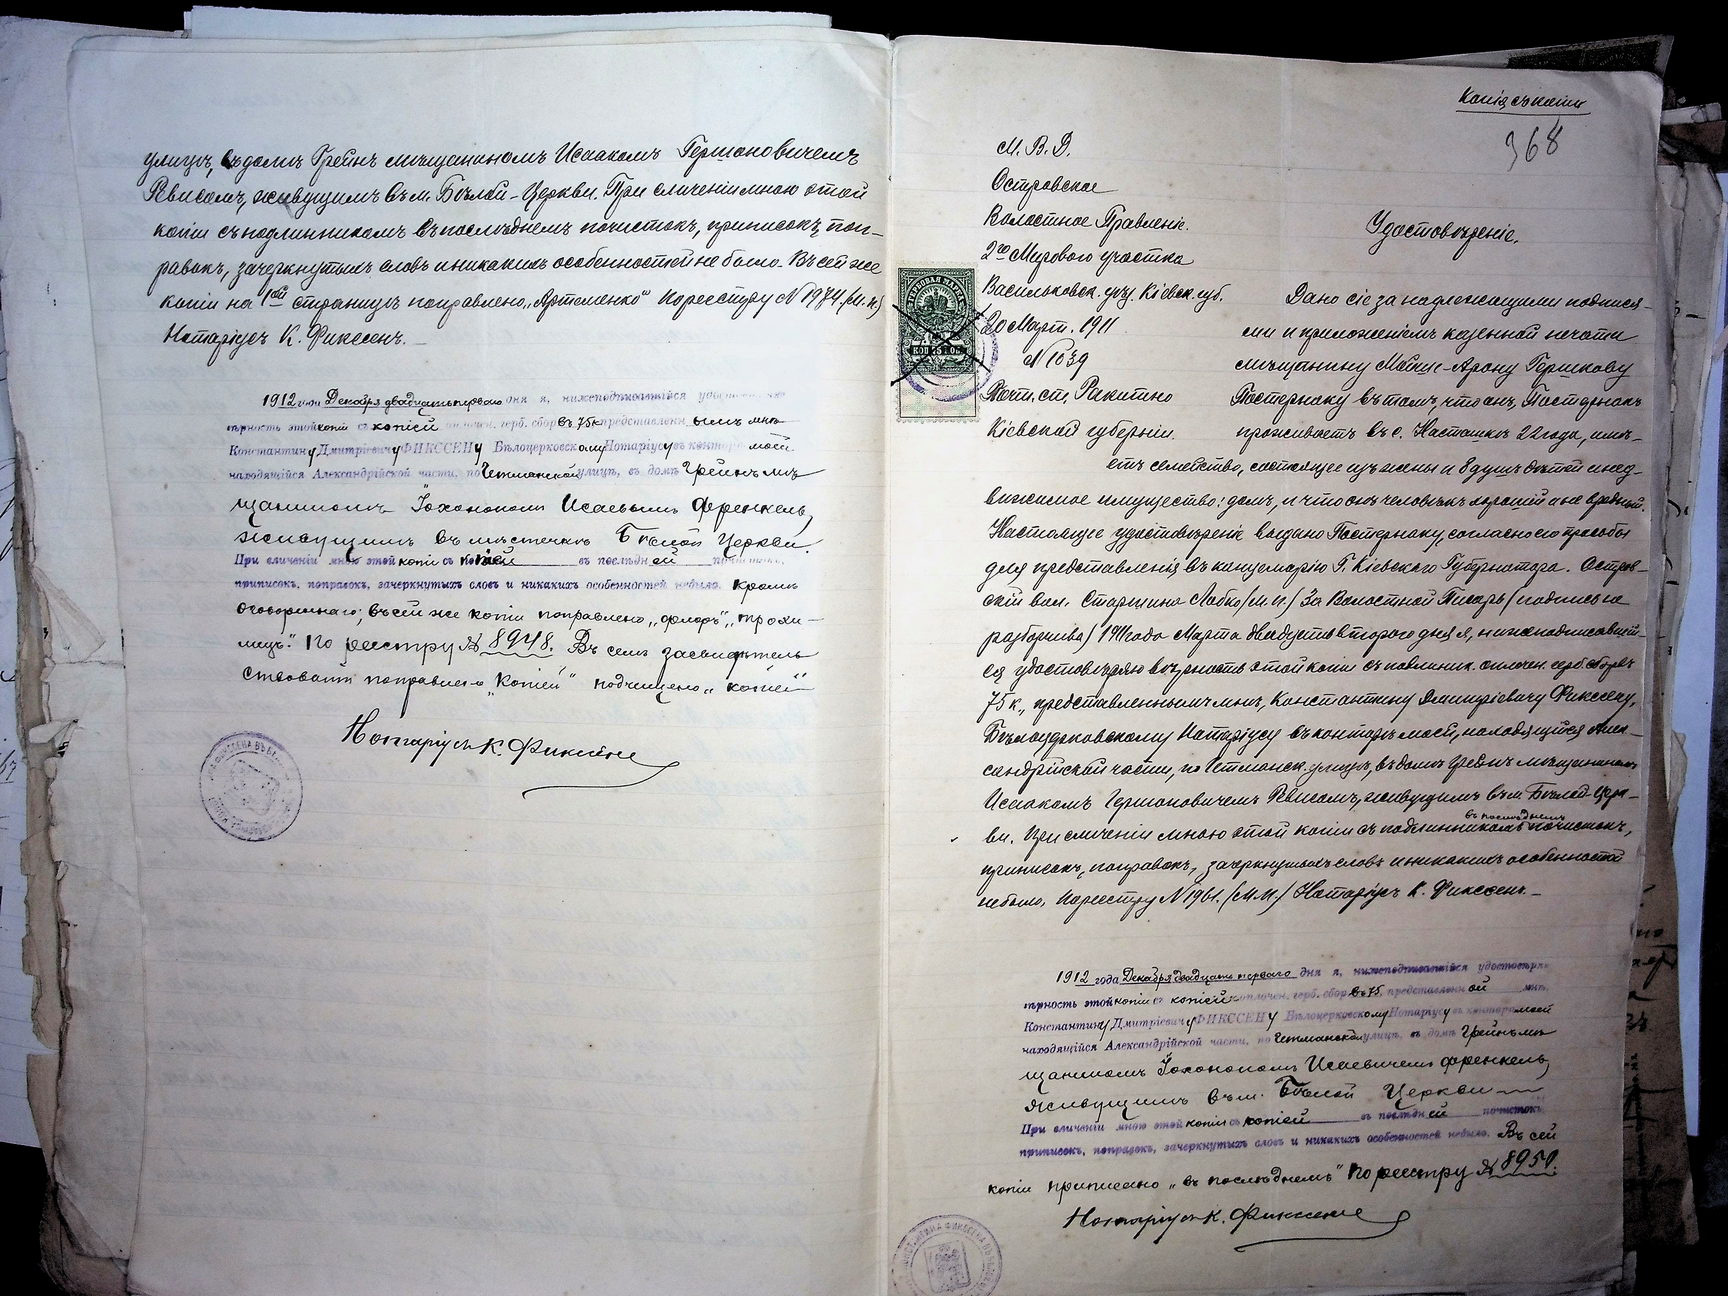 улицѣ, въ домѣ Грейнъ мѣщаниномъ Исаакомъ Гершоновичемъ
Ревисомъ, живущимъ въ м. Бѣлой-Церкви. При сличеніи мною этой
копіи съ подлинникомъ въ послѣднемъ почистокъ, приписокъ, поп-
равокъ, зачеркнутыхъ словъ и никакихъ особенностей не было. Въ сей же
копіи на 1ой страницѣ поправлено „Артеменко" По реестру N 1974 (М. п.)
Нотаріусъ К. Фиксенъ.
1912 года Декабря двадцать перваго дня я, нижеподписавшійся
вѣрность этой копіи съ копіей оплочен. герб. сбор. въ 75 к. представленн ымъ мнѣ
Константину Дмитріевичу ФИКСЕНу Бѣлоцерковскому Нотаріусу въ контор моей
находящійся Александрійской части, по Гетманской улицѣ, въ домѣ Грейнъ мѣ
щаниномъ Іохонономъ Исаевымъ Френкель,
живущимъ въ мѣстечкѣ Бѣлой Церкви.
При сличеніи мною этой копіи съ копіей въ послѣдн ей почистокъ,
приписокъ, поправокъ, зачеркнутыхъ словъ и никакихъ особенностей небыло. кромѣ
оговореннаго; въ сей же копіи поправлено „флоръ", „трохи-
мецъ". По реестру № 8948. Въ семъ засвидѣтель
ствованіи поправлено „Копіей" подчищено „копіей"
Нотаріусъ К. Фиксенъ
Копія съ копіи
368
М. В. Д.
Островское
Волостное Правленіе.
2го Мирового участка
Васильковск. уѣз. Кіевск. губ.
20 Март. 1911
N 1039
Почт. ст. Ракитно
Кіевской губерніи.
Удостовѣреніе.
Дано сіе за надлежащими подпися-
ми и приложеніемъ казенной печати
мѣщанину Арону Гершкову
Пастернаку въ томъ, что онъ, Пастернакъ
проживаетъ въ с. Насташкѣ 22 года, имѣ-
етъ семейство, состоящее изъ жены и 8 душъ дѣтей и нед-
вижимое имущество: домъ, и что онъ человѣкъ хорошій а не вредный.
Настоящее удостовѣреніе выдано Пастернаку, согласно его просьбы
для представленія въ канцелярію Г. Кіевскаго Губернатора. Остров-
скій вол. Старшина Лабко (м. п.) За Волостной Писарь (подпись не
разборчива) 1911 года Марта двадцать второго дня я, нижеподписавшій-
ся удостовѣряю вѣрность этой копіи съ подлинник. оплочен. герб. сборъ
75 к., представленнымъ мнѣ, Константину Дмитріевичу Фиксену,
Бѣлоцерковскому Нотаріусу въ конторѣ моей, находящійся Алек-
сандрійской части, по Гетманск. улицѣ, въ домѣ Грейнъ мѣщаниномъ
Исаакомъ Гершоновичемъ Ревисомъ, живущимъ въ м. Бѣлой-Церк-
ви. При сличеніи мною этой копіи съ подлинникомъ въ послѣднемъ почистокъ,
приписокъ, поправокъ, зачеркнутыхъ словъ и никакихъ особенностей
небыло. По реестру N 1961. (М. П.) Нотаріусъ К. Фиксенъ.
1912 года Декабря двадцать перваго дня я, нижеподписавшійся удостовѣря
вѣрность этой копіи съ копіей оплочен. герб. сбор. въ 75. представленн ой мнѣ
Константину Дмитріевичу ФИКСЕНу Бѣлоцерковскому Нотаріусу въ конторѣ моей
находящійся Александрійской части, по Гетманской улицѣ, въ домѣ Грейнъ мѣ
щаниномъ Іохонономъ Исаевичемъ Френкель,
живущимъ въ м. Бѣлой Церкви
При сличеніи мною этой копіи съ копіей въ послѣдн ей почистокъ
приписокъ, поправокъ, зачеркнутыхъ словъ и никакихъ особенностей небыло. Въ сей
копіи приписано „въ послѣднемъ" По реестру № 8950.
Нотаріусъ К. Фиксенъ